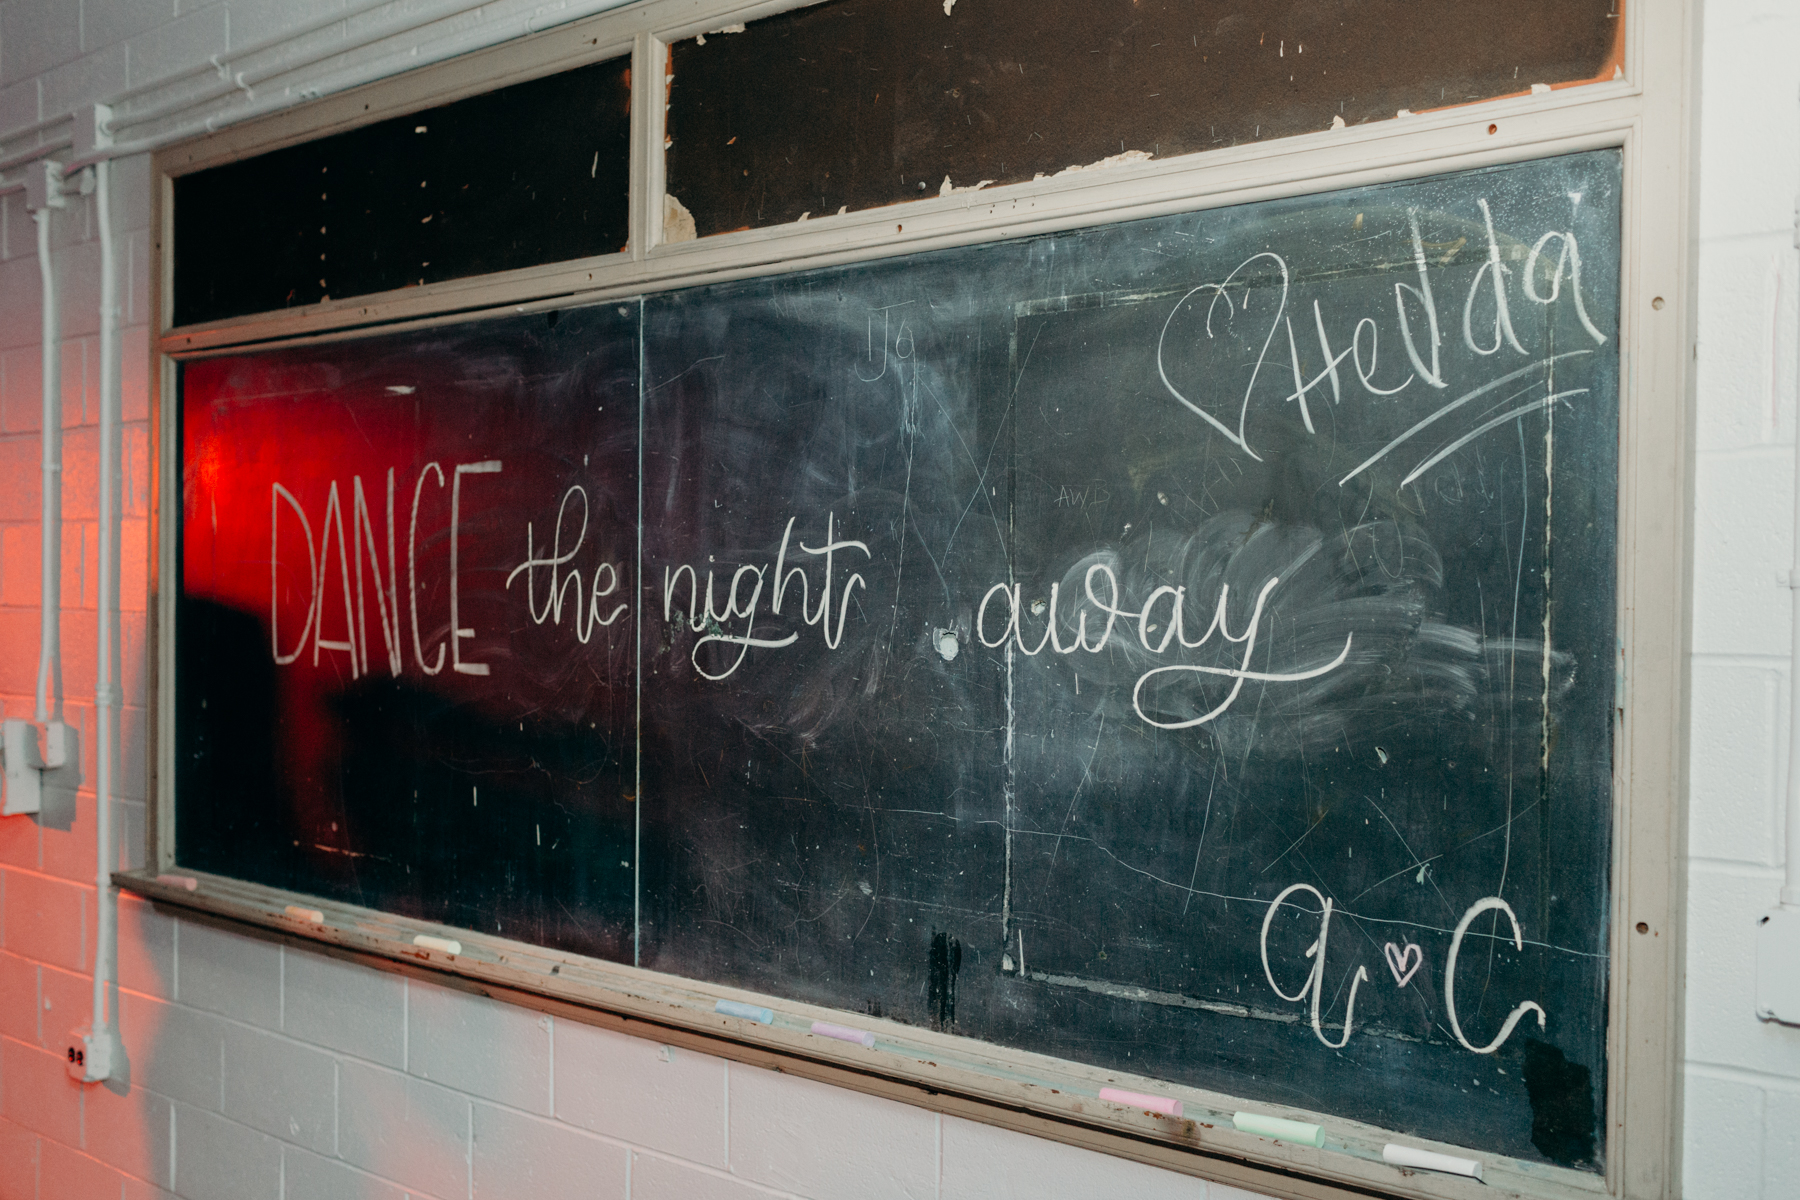 ♡ Hedda
DANCE the night away
a ♡ C
AWD